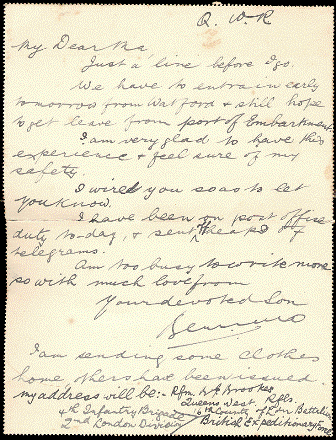 Q. W. R
My Dear Ma
Just a line before I go.
We have to entrain early
tomorrow from Watford & still hope
to get leave from port of Embarkment
I am very glad to have this
experience & feel sure of my
safety.
I wired you so as to let
you know.
I have been on post office
duty to-day, & sent heaps of
telegrams.
Am too busy to write more
so with much love from
Your devoted Son
I am sending some clothes
home others have been issued.
my address will be:- Rfm A. Brooker
Queens West. Rfls.
4th Infantry Brigade 16th County of Lon Battalion
2nd London Division British Expeditionary Force